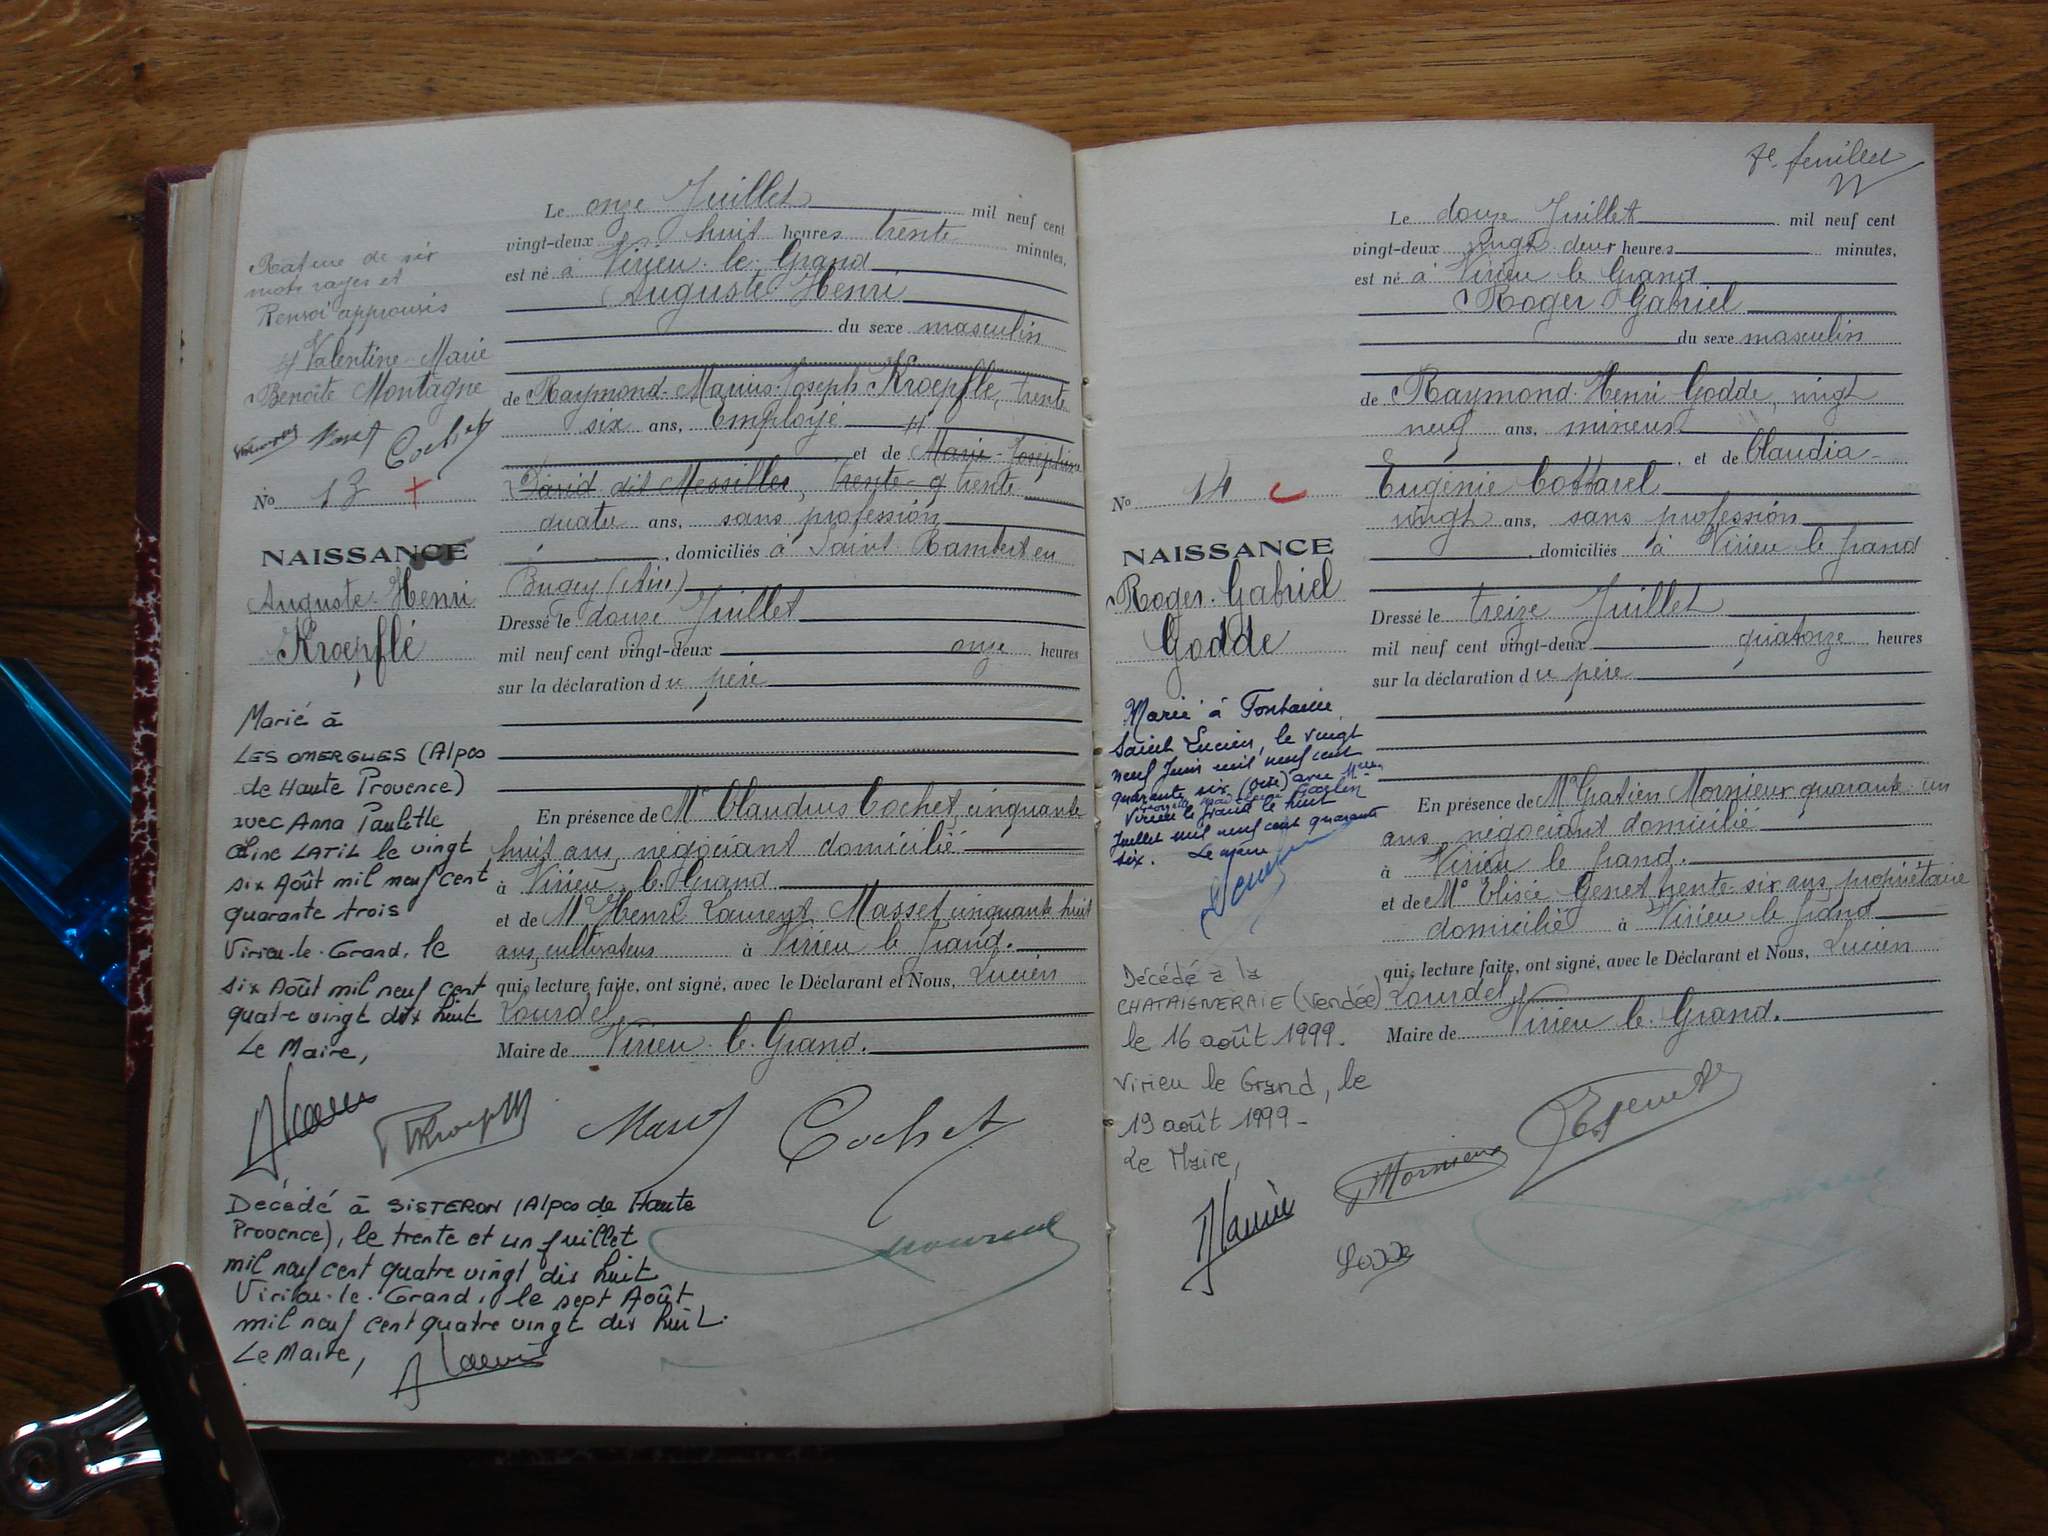 Le onze Juillet mil neuf cent
vingt-deux huit heures trente minutes,
est né à Virieu-le-Grand
Auguste Henri
du sexe masculin
de Raymond-Marius-Joseph Kroepflé, trente
six ans, Employé
et de Marie-Joséphine
David dit Messiller, trente-q trente
quatre ans, sans profession
, domiciliés à Saint-Rambert en
Bugey (Ain)
Dressé le douze Juillet
mil neuf cent vingt-deux onze heures
sur la déclaration du père
En présence de Mr Claudius Cochet, cinquante
huit ans, négociant domicilié
à Virieu-le-Grand
et de Mr Henri Laurent Masset, cinquante huit
ans, cultivateur à Virieu le Grand.
qui, lecture faite, ont signé, avec le Déclarant et Nous, Lucien
Lourdel,
Maire de Virieu-le-Grand.
Rature de six
mots rayés et
Renvoi approuvés
Valentine-Marie
Benoîte Montagne
Cochet
No 13 +
NAISSANCE
Auguste-Henri
Kroepflé
Marié à
LES OMERGUES (Alpes
de Haute Provence)
avec Anna Paulette
Line LATIL le vingt
six Août mil neuf cent
quarante trois
Virieu-le-Grand, le
six Août mil neuf cent
quatre vingt dix huit
Le Maire,
Cochet
Décédé à SISTERON (Alpes de Haute
Provence), le trente et un juillet
mil neuf cent quatre vingt dix huit
Virieu-le-Grand, le sept Août
mil neuf cent quatre vingt dix huit.
Le Maire,
7e feuillet
Le douze Juillet mil neuf cent
vingt-deux vingt deux heures minutes,
est né à Virieu le Grand
Roger Gabriel
du sexe masculin
de Raymond-Henri Godde, vingt
neuf ans, mineur
, et de Claudia-
Eugénie Cottarel
vingt ans, sans profession
, domiciliés à Virieu le Grand
Dressé le treize Juillet
mil neuf cent vingt-deux quatorze heures
sur la déclaration du père
En présence de Mr Gratien Mornieux quarante un
ans, négociant domicilié
à Virieu le Grand.
et de Mr Elisée Genet, trente-six ans, propriétaire
domicilié à Virieu le Grand
qui, lecture faite, ont signé, avec le Déclarant et Nous, Lucien
Lourdel,
Maire de Virieu-le-Grand.
No 14
NAISSANCE
Roger-Gabriel
Godde
Marié à Fontaine
Saint Lucien, le vingt
neuf Juin mil neuf cent
quarante six (Oise) avec Melle
Virieu le Grand le huit
Juillet mil neuf cent quarante
six. Le Maire
Décédé à la
CHATAIGNERAIE (Vendée)
le 16 août 1999.
Virieu le Grand, le
19 août 1999-
Le Maire,
Mornieux
Godde